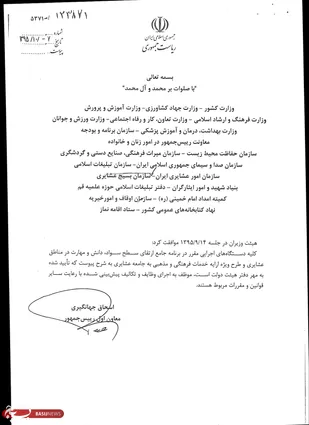 ۱۳۳۸۷۱
جمهوری اسلامی ایران
ریاست جمهوری
بسمه تعالی
"با صلوات بر محمد و آل محمد"
وزارت کشور - وزارت جهاد کشاورزی - وزارت آموزش و پرورش
وزارت فرهنگ و ارشاد اسلامی - وزارت تعاون، کار و رفاه اجتماعی - وزارت ورزش و جوانان
وزارت بهداشت، درمان و آموزش پزشکی - سازمان برنامه و بودجه
معاونت رییس‌جمهور در امور زنان و خانواده
سازمان حفاظت محیط زیست - سازمان میراث فرهنگی، صنایع دستی و گردشگری
سازمان صدا و سیمای جمهوری اسلامی ایران - سازمان تبلیغات اسلامی
سازمان امور عشایری ایران - سازمان بسیج عشایری
بنیاد شهید و امور ایثارگران - دفتر تبلیغات اسلامی حوزه علمیه قم
کمیته امداد امام خمینی (ره) - سازمان اوقاف و امور خیریه
نهاد کتابخانه‌های عمومی کشور - ستاد اقامه نماز
هیئت وزیران در جلسه ۱۳۹۵/۹/۱۴ موافقت کرد:
کلیه دستگاه‌های اجرایی مقرر در برنامه جامع ارتقای سطح سواد، دانش و مهارت در مناطق
عشایری و طرح ویژه ارایه خدمات فرهنگی و مذهبی به جامعه عشایری به شرح پیوست که تأیید شده
به مهر دفتر هیئت دولت است، موظف به اجرای وظایف و تکالیف پیش‌بینی شده با رعایت سایر
قوانین و مقررات مربوط هستند.
اسحاق جهانگیری
معاون اول رییس‌جمهور
BASIJNEWS